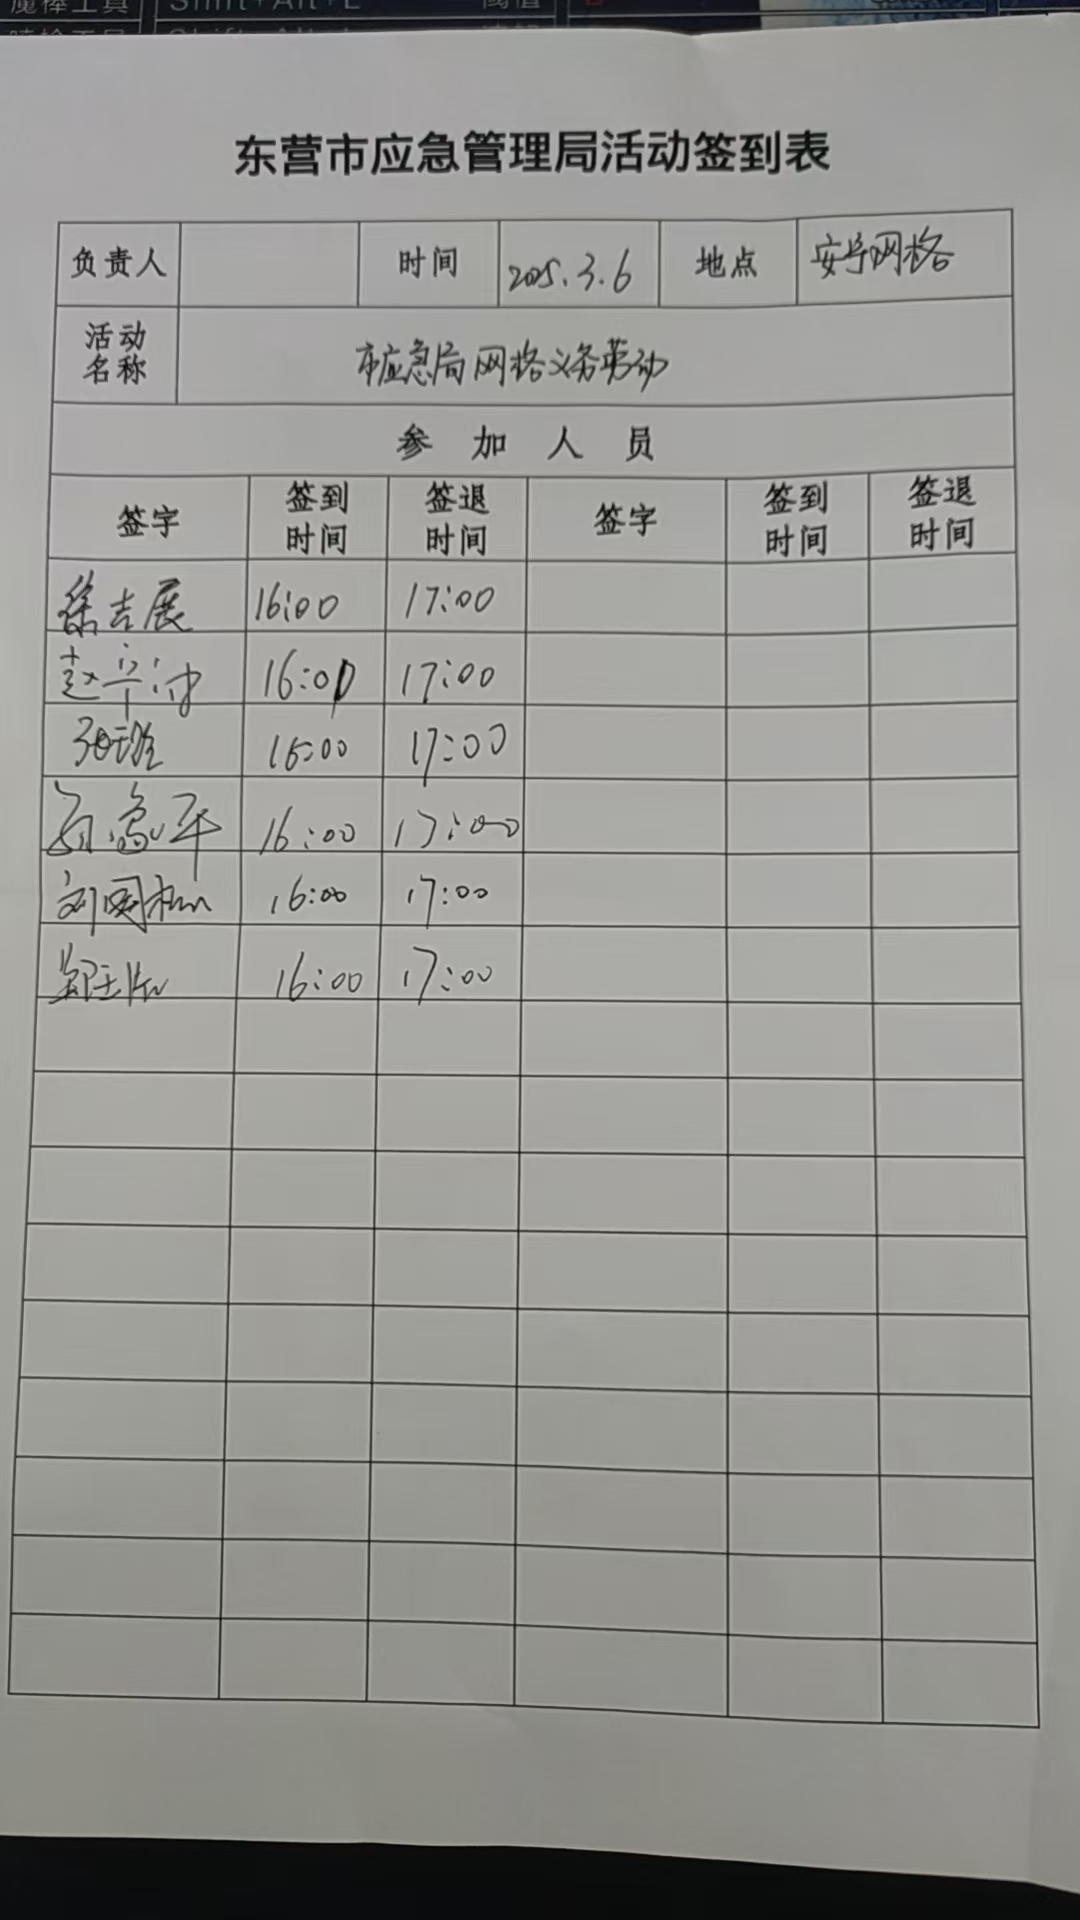 魔棒工具 Shift+Alt+E 阈值
东营市应急管理局活动签到表
负责人 时间 2025.3.6 地点 安宁网格
活动名称 市应急局网格义务劳动
参加人员
签字 签到时间 签退时间 签字 签到时间 签退时间
徐吉展 16:00 17:00
赵 16:00 17:00
16:00 17:00
16:00 17:00
刘国栋 16:00 17:00
16:00 17:00